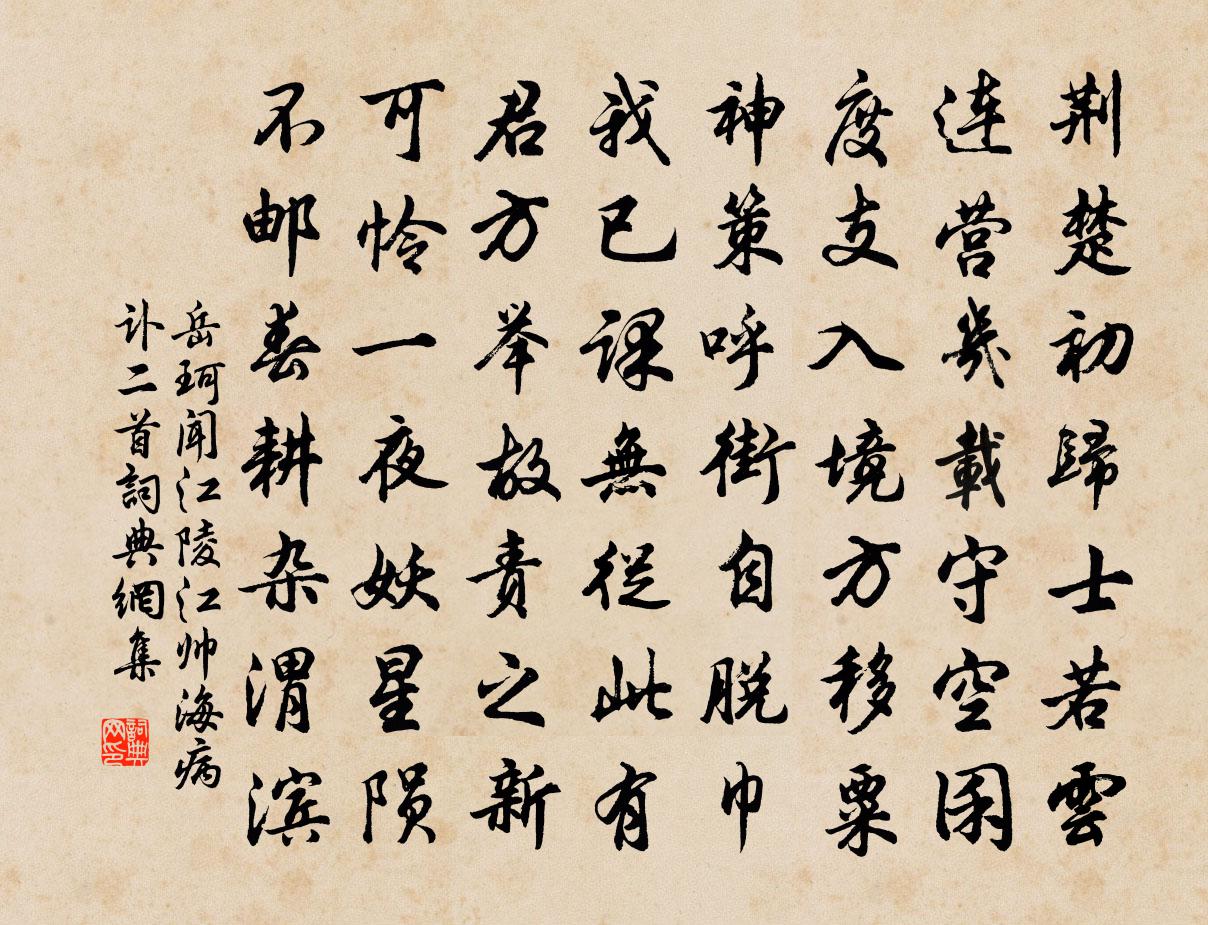 荆楚初歸士若雲
連营幾載守空囷
度支入境方移粟
神策呼街自脱巾
我已課無從此有
君方举故责之新
可怜一夜妖星陨
不邮春耕杂渭滨
岳珂闻江陵江帅海病
讣二首詞典網集
詞典网印